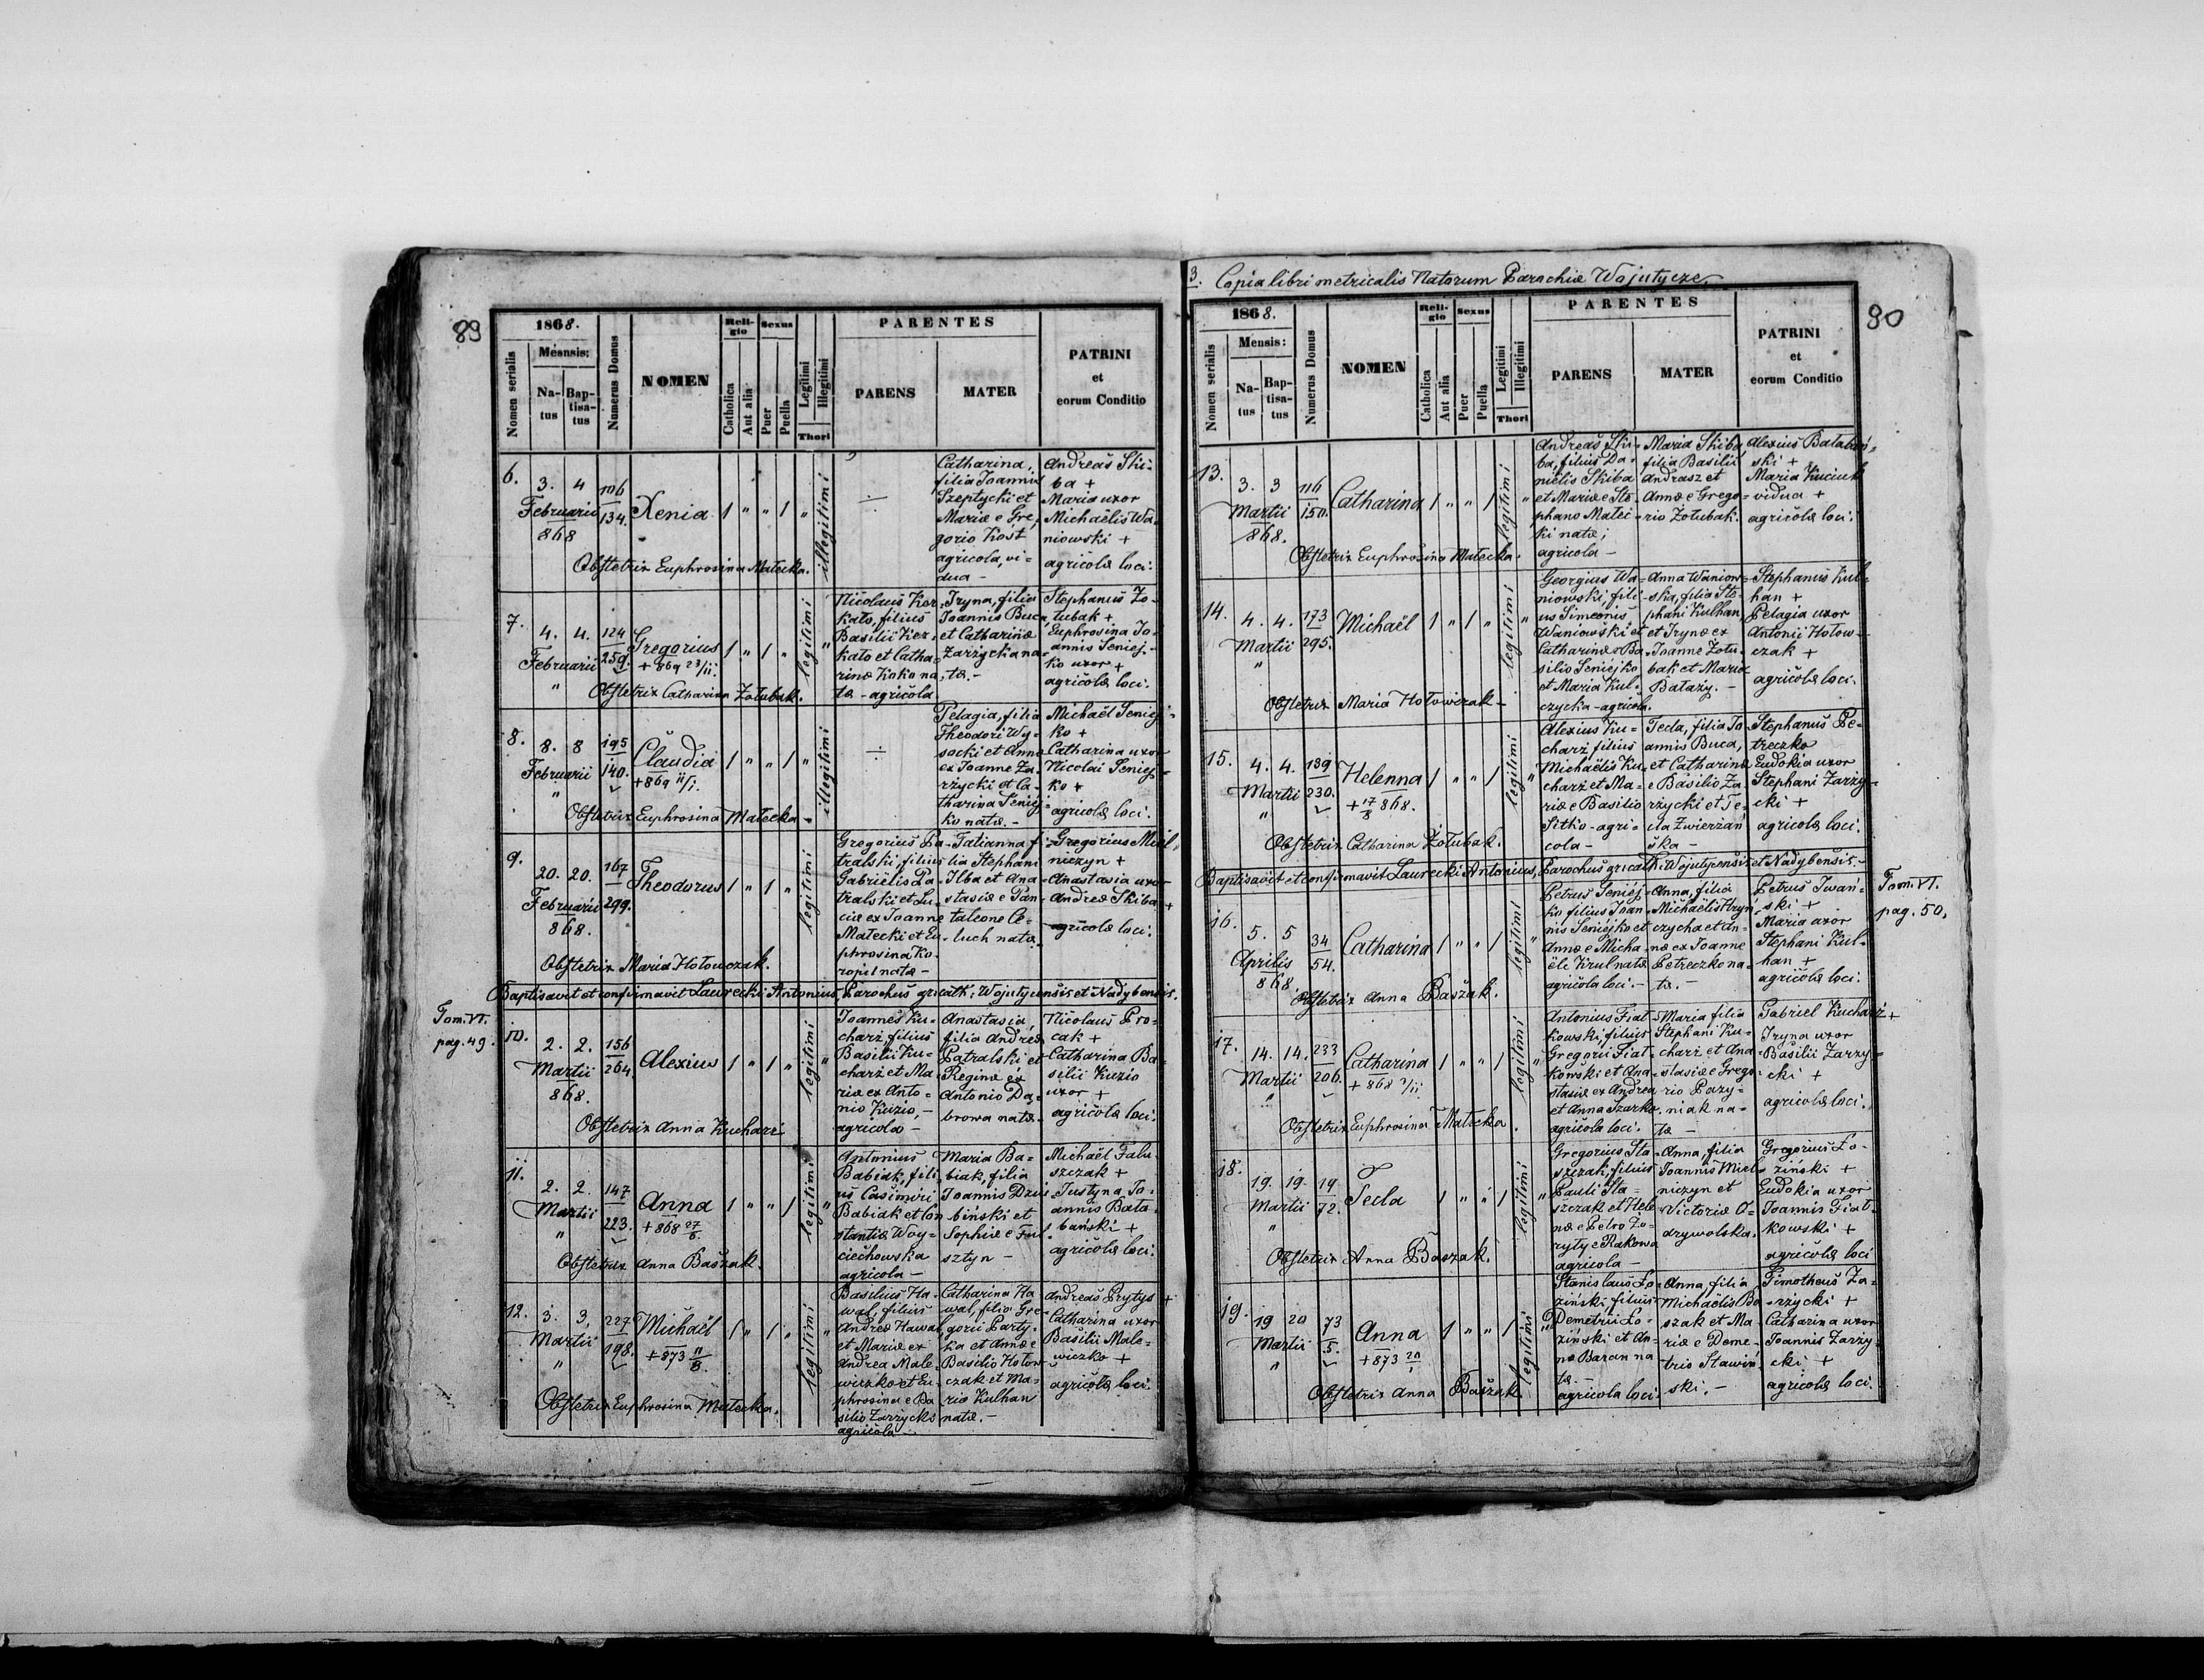 89
1868.
Nomen serialis
Mensnsis:
Na-
tus
Bap-
tisa-
tus
Numerus Domus
NOMEN
Reli-
gio
Catholica
Aut alia
Sexus
Puer
Puella
Legitimi
Illegitimi
Thori
PARENTES
PARENS
MATER
PATRINI
et
eorum Conditio
6.
3. 4
Februarii
868
106
134.
Xenia
1 " " 1 "
illegitimi
÷
Catharina,
filia Joannis
Szeptycki et
Mariæ e Gre-
gorio Kost
agricola, vi-
dua -
Andreas Ski-
ba +
Maria uxor
Michaëlis Wa-
niowski +
agricolæ loci.
Obstetrix Euphrosina Małecka.
7.
4. 4.
Februarii
"
124
259.
Gregorius
+ 869 23/11.
1 " 1 "
legitimi
"
Nicolaus Ker-
kało, filius
Basilii Ker-
kało et Catha-
rinæ Koko na-
tæ - agricola
Iryna, filia
Joannis Buca,
et Catharinæ
Zarzycka na-
tæ. -
Stephanus Żo-
łubak +
Euphrosina Jo-
annis Seniej-
ko uxor +
agricolæ loci.
Obstetrix Catharina Żołubak.
8.
8. 8
Februarii
"
195
140.
Claudia
+ 869 11/1.
1 " " 1 "
illegitimi
÷
Pelagia, filia
Theodori Wy-
socki et Annæ
ex Joanne Za-
rzycki et Ca-
tharina Seniej-
ko natæ. -
Michaël Seniej-
ko +
Catharina uxor
Nicolai Seniej-
ko +
agricolæ loci.
Obstetrix Euphrosina Małecka -
9.
20. 20.
Februarii
868.
167
299.
Theodorus
1 " 1 "
legitimi
Gregorius Pa-
tralski, filius
Gabriëlis Pa-
tralski et Lu-
ciæ ex Joanne
Małecki et Eu-
phrosina Ko-
ropiel natæ -
Tatianna fi-
lia Stephani
Ilba et Ana-
stasiæ e Pan-
taleone Ce-
luch natæ.
Gregorius Miel-
niczyn +
Anastasia uxor
Andreæ Skiba +
agricolæ loci.
Obstetrix Maria Hołowczak.
Baptisavit et confirmavit Laurecki Antonius, Parochus gr.cath. Wojutycensis et Nadybensis.
Tom. VI.
pag. 49.
10.
2. 2.
Martii
868.
156
264.
Alexius
1 " 1 "
legitimi
"
Joannes Ku-
charż, filius
Basilii Ku-
charż et Ma-
riæ ex Anto-
nio Kuzio, -
agricola -
Anastasia,
filia Andreæ
Patralski et
Reginæ ex
Antonio Dą-
browa natæ.
Nicolaus Pro-
cak +
Catharina Ba-
silii Kuzio
uxor +
agricolæ loci.
Obstetrix Anna Kucharż
11.
2. 2.
Martii
"
147
223.
Anna
+ 868 27/6.
1 " " 1
legitimi
"
Antonius
Babiak, fili-
us Casimiri
Babiak et Con-
stantiæ Woy-
ciechowska
agricola -
Maria Ba-
biak, filia
Joannis Dziu-
biński et
Sophiæ e Ful-
sztyn -
Michaël Falu-
szczak +
Justyna Jo-
annis Bała-
bański +
agricolæ loci.
Obstetrix Anna Baszak.
12.
3. 3.
Martii
"
227
198.
Michaël
+ 873 11/8.
1 " 1 "
legitimi
"
Basilius Ha-
wal, filius
Andreæ Hawal,
et Mariæ ex
Andrea Male-
wiczko et Eu-
phrosina e Ba-
silio Zarzycki
agricola -
Catharina Ha-
wal, filia Gre-
gorii Party-
ka et Annæ e
Basilio Hołow-
czak et Ma-
ria Kulhan
natæ. -
Andreas Prytys +
Catharina uxor
Basilii Male-
wiczko +
agricolæ loci.
Obstetrix Euphrosina Małecka.
3. Copia libri metricalis Natorum Parochiæ Wojutycze.
90
1868.
Nomen serialis
Mensis:
Na-
tus
Bap-
tisa-
tus
Numerus Domus
NOMEN
Reli-
gio
Catholica
Aut alia
Sexus
Puer
Puella
Legitimi
Illegitimi
Thori
PARENTES
PARENS
MATER
PATRINI
et
eorum Conditio
13.
3. 3
Martii
868.
116
150.
Catharina
1 " " 1
legitimi
"
Andreas Ski-
ba, filius Da-
niëlis Skiba
et Mariæ e Ste-
phano Matei-
ki natæ;
agricola -
Maria Skiba,
filia Basilii
Andrasz et
Annæ e Grego-
rio Żołubak.
Alexius Bałabań-
ski +
Maria Kuciuk
vidua +
agricolæ loci.
Obstetrix Euphrosina Małecka.
14.
4. 4.
Martii
"
173
295.
Michaël
1 " 1 "
legitimi
"
Georgius Wa-
niowski fili-
us Simeonis
Waniowski et
Catharinæ e Ba-
silio Seniejko
et Maria Kul-
czycka - agricola.
Anna Waniow-
ska, filia Ste-
phani Kulhan,
et Irynæ ex
Joanne Żołu-
bak et Maria
Bałaży. -
Stephanus Kul-
han +
Pelagia uxor
Antonii Hołow-
czak +
agricolæ loci.
Obstetrix Maria Hołowczak -
15.
4. 4.
Martii
"
139
230.
Helenna
+ 17/8 868.
1 " " 1
legitimi
"
Alexius Ku-
charż filius
Michaëlis Ku-
charż et Ma-
riæ e Basilio
Sitko - agri-
cola -
Tecla, filia Jo-
annis Buca,
et Catharinæ
e Basilio Za-
rzycki et Te-
cla Zwierzań-
ska -
Stephanus Pe-
treczko
Eudokia uxor
Stephani Zarzy-
cki +
agricolæ loci.
Obstetrix Catharina Żołubak.
Baptisavit et confirmavit Laurecki Antonius, Parochus gr.cath. Wojutycensis et Nadybensis. -
Tom. VI.
pag. 50.
16.
5. 5
Aprilis
868.
34
54.
Catharina
1 " " 1
legitimi
"
Petrus Seniej-
ko filius Joan-
nis Seniejko et
Annæ e Micha-
ële Krul natæ
agricola loci. -
Anna, filia
Michaëlis Hryń-
czycha et An-
næ ex Joanne
Petreczko na-
tæ. -
Petrus Iwań-
ski +
Maria uxor
Stephani Kul-
han +
agricolæ loci.
Obstetrix Anna Baszak.
17.
14. 14.
Martii
"
233
206.
Catharina
+ 868 7/11
1 " " 1
legitimi
"
Antonius Fiat-
kowski, filius
Gregorii Fiat-
kowski et Ana-
stasiæ ex Andrea
et Anna Szarko
agricola loci.
Maria filia
Stephani Ku-
charż et Ana-
stasiæ e Grego-
rio Pazy-
niak na-
tæ -
Gabriel Kucharż +
Iryna uxor
Basilii Zarzy-
cki +
agricolæ loci.
Obstetrix Euphrosina Małecka.
18.
19. 19.
Martii
"
19
72.
Tecla
1 " " 1
legitimi
"
Gregorius Sta-
szczak, filius
Pauli Sta-
szczak et Hele-
næ e Petro Zo-
ryty e Rakowa
agricola -
Anna, filia
Joannis Miel-
niczyn et
Victoriæ O-
drzywolska.
Gregorius Ło-
ziński +
Eudokia uxor
Joannis Fiat-
kowski +
agricolæ loci
Obstetrix Anna Baszak.
19.
19 20
Martii
"
73
5.
Anna
+ 873 20/1
1 " " 1
legitimi
"
Stanislaus Ło-
ziński, filius
Demetrii Ło-
ziński et An-
na Baran na-
tæ. -
agricola loci
Anna, filia
Michaëlis Ba-
szak et Ma-
riæ e Deme-
trio Sławiń-
ski. -
Timotheus Za-
rzycki +
Catharina uxor
Joannis Zarzy-
cki +
agricolæ loci.
Obstetrix Anna Baszak